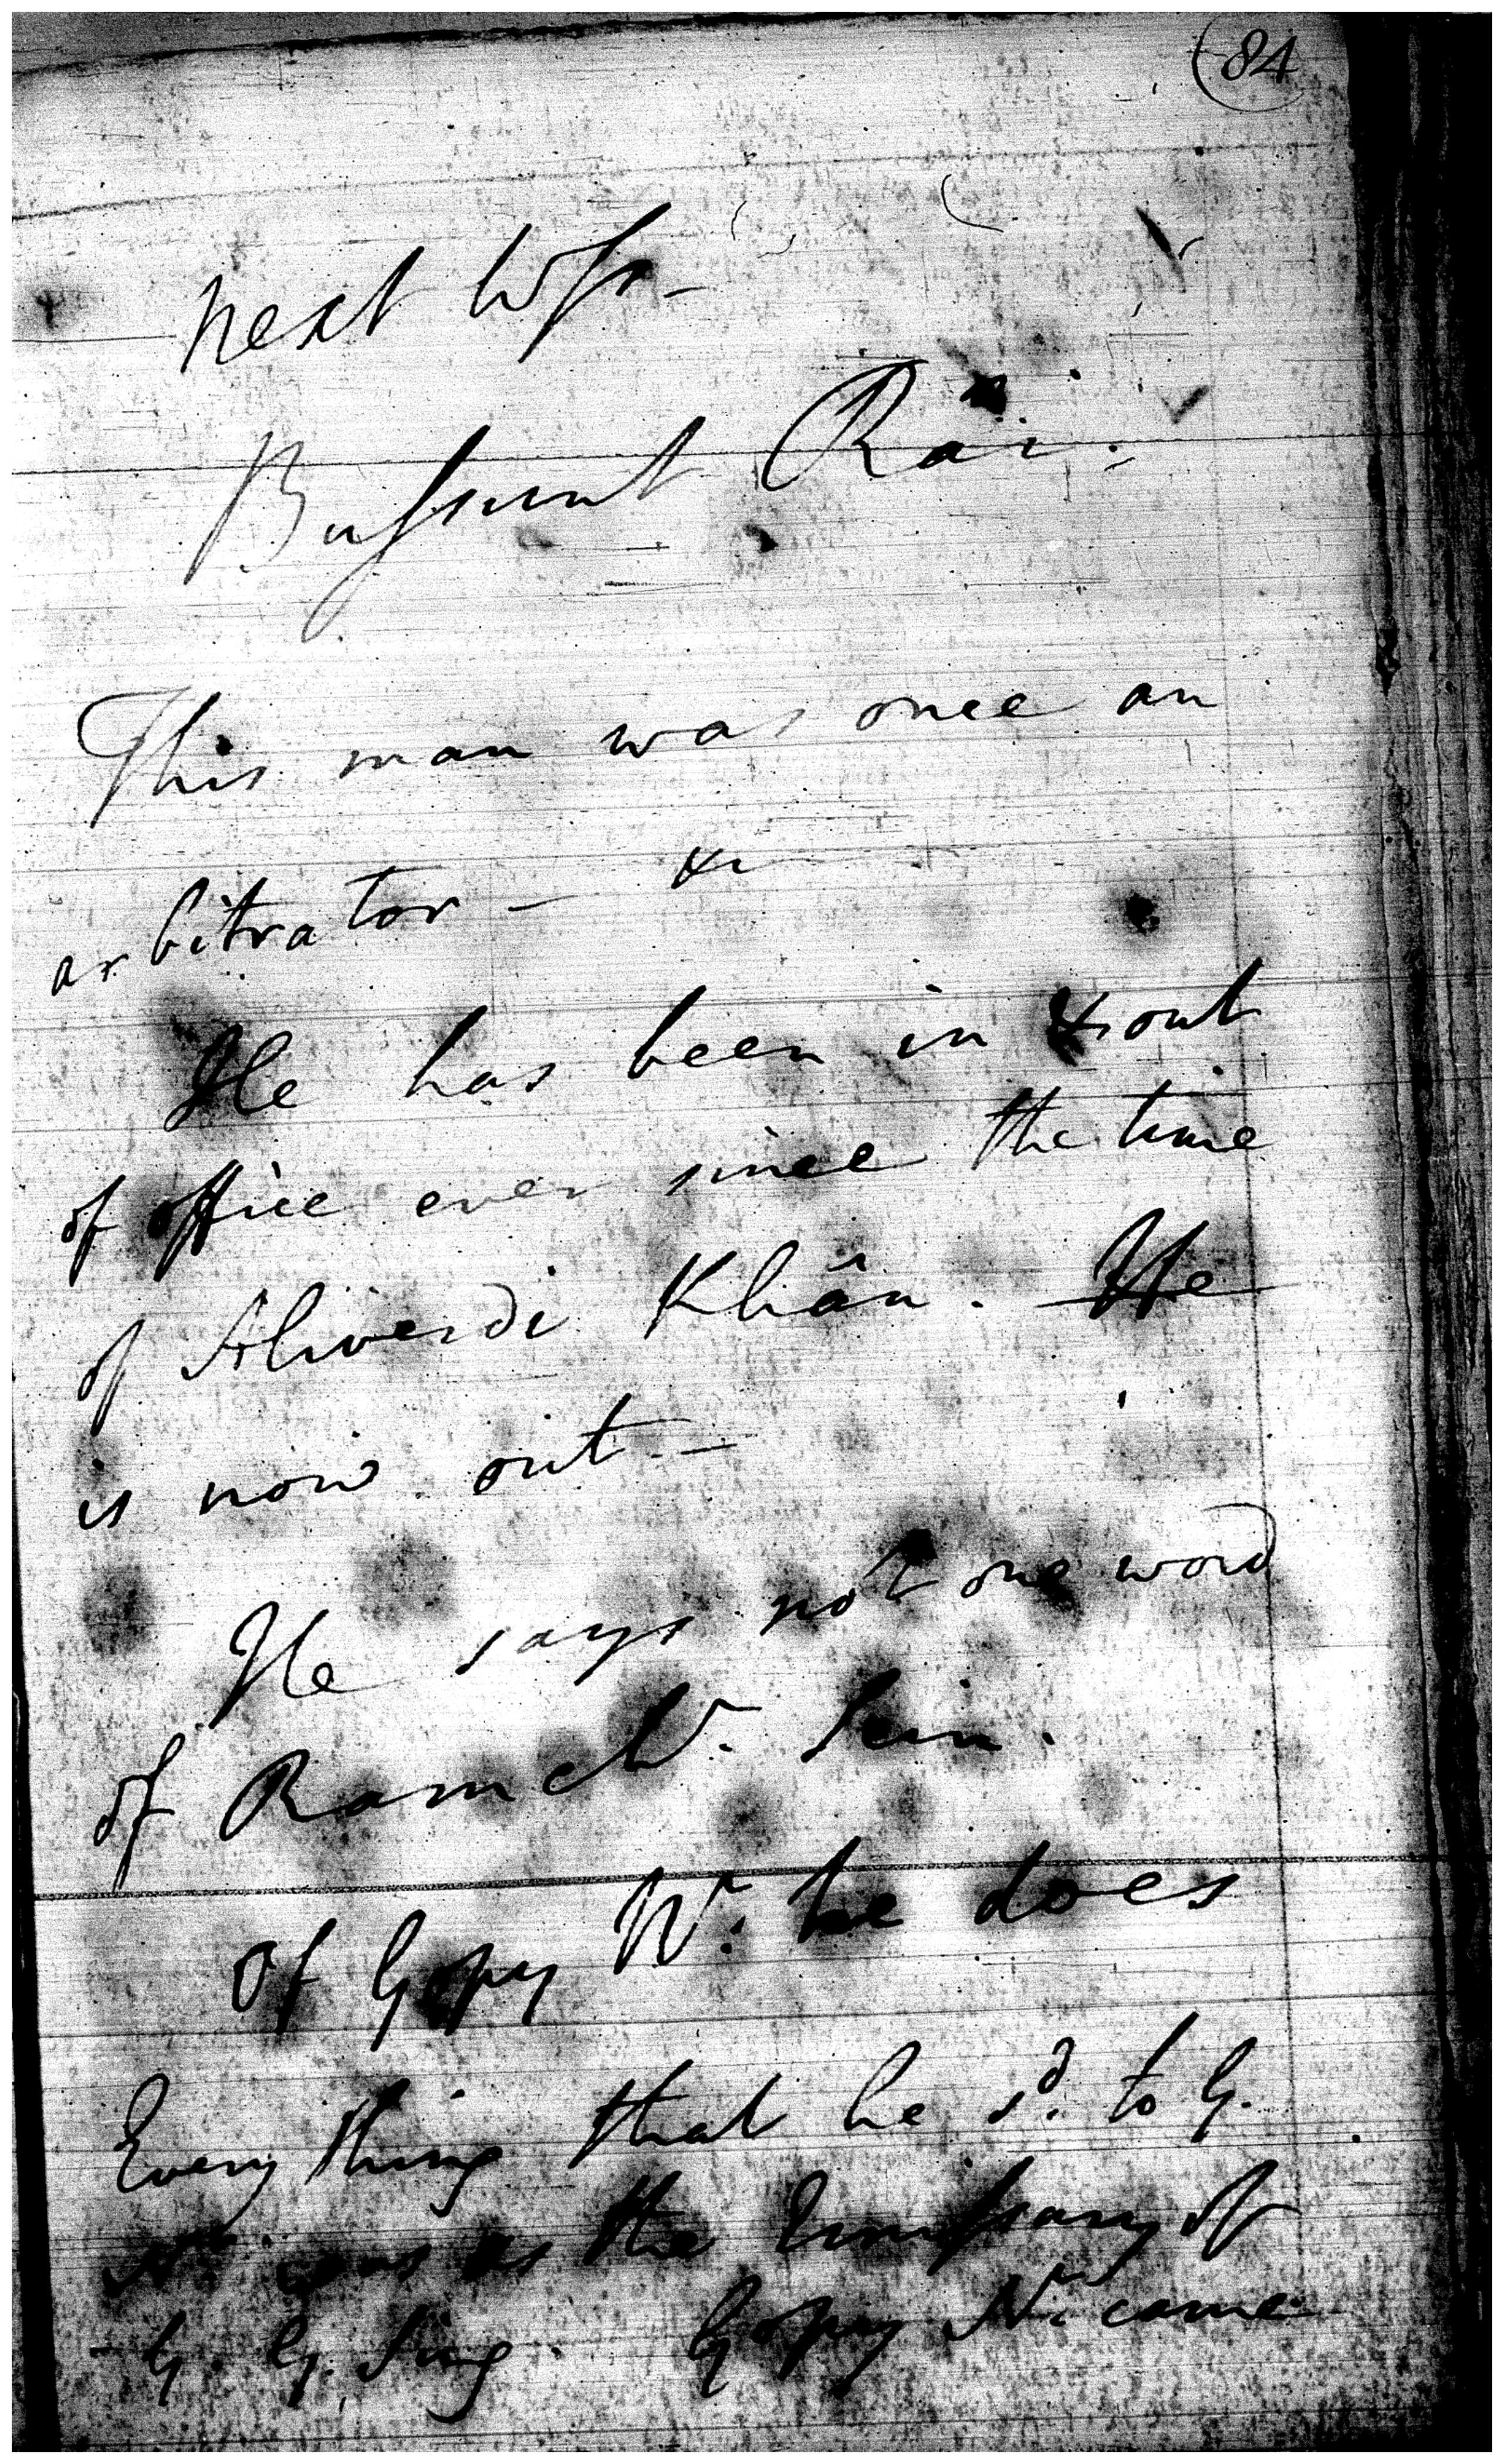 84
next Wss -
Bussunt Rai.
This man was once an
arbitrator - &
He has been in & out
of office ever since the time
of Aliverdi Khân. He
is now out -
He says not one word
of Ram Sein.
Of Gopy Nr. he does
Every thing that he sd. to G.
Nr. was as the Emissary of
G. G. Sing. Gopy Nr. came